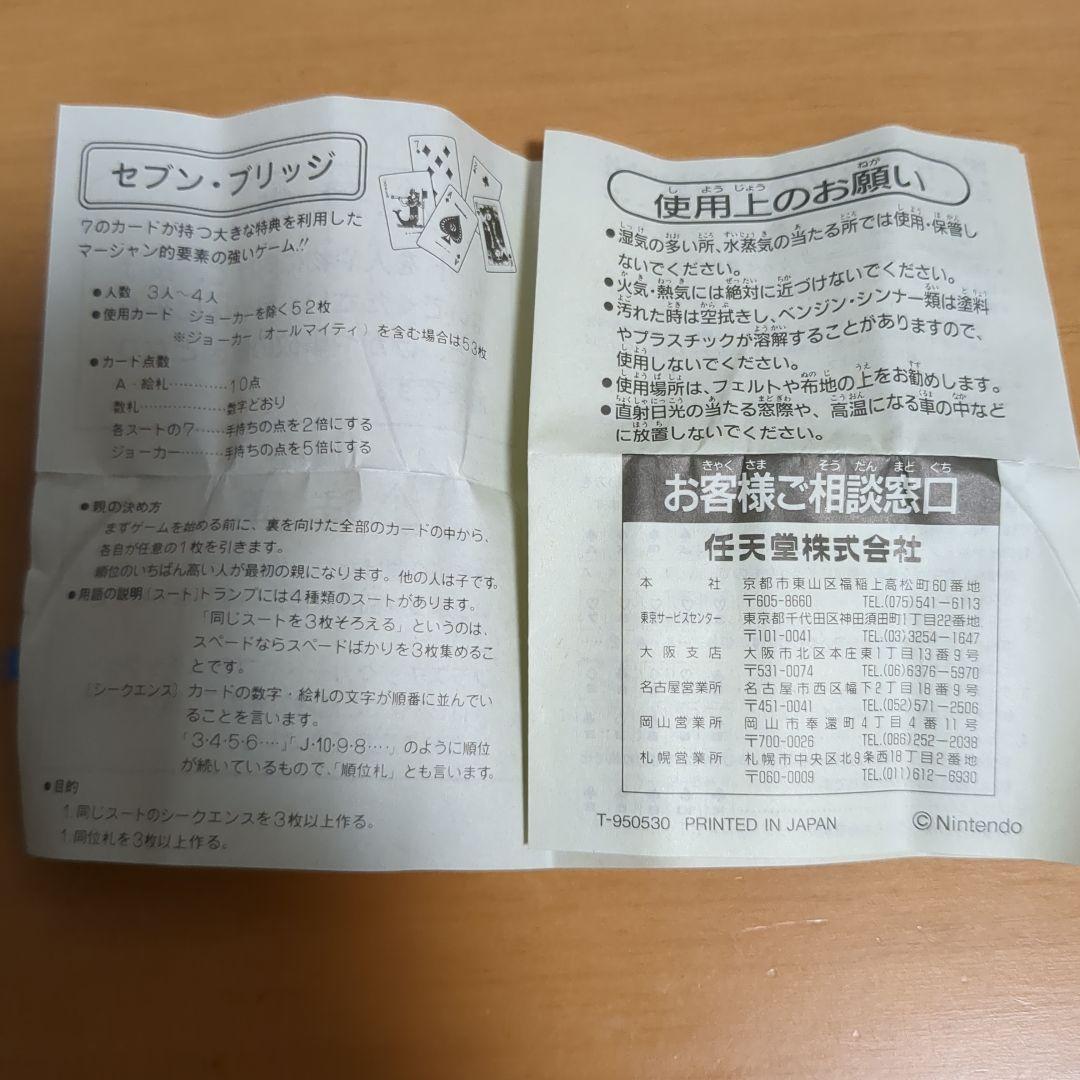 セブン・ブリッジ
7のカードが持つ大きな特典を利用した
マージャン的要素の強いゲーム!!
●人数 3人〜4人
●使用カード ジョーカーを除く52枚
※ジョーカー(オールマイティ)を含む場合は53枚
●カード点数
A・絵札…………10点
数札……………数字どおり
各スートの7……手持ちの点を2倍にする
ジョーカー………手持ちの点を5倍にする
●親の決め方
まずゲームを始める前に、裏を向けた全部のカードの中から、
各自が任意の1枚を引きます。
順位のいちばん高い人が最初の親になります。他の人は子です。
●用語の説明(スート)トランプには4種類のスートがあります。
「同じスートを3枚そろえる」というのは、
スペードならスペードばかりを3枚集めるこ
とです。
(シークエンス)カードの数字・絵札の文字が順番に並んでい
ることを言います。
「3・4・5・6‥‥」「J・10・9・8‥‥」のように順位
が続いているもので、「順位札」とも言います。
●目的
1.同じスートのシークエンスを3枚以上作る。
1.同位札を3枚以上作る。
使用上のお願い
●湿気の多い所、水蒸気の当たる所では使用・保管し
ないでください。
●火気・熱気には絶対に近づけないでください。
●汚れた時は空拭きし、ベンジン・シンナー類は塗料
やプラスチックが溶解することがありますので、
使用しないでください。
●使用場所は、フェルトや布地の上をお勧めします。
●直射日光の当たる窓際や、高温になる車の中など
に放置しないでください。
お客様ご相談窓口
任天堂株式会社
本社 京都市東山区福稲上高松町60番地
〒605-8660 TEL.(075)541-6113
東京サービスセンター 東京都千代田区神田須田町1丁目22番地
〒101-0041 TEL.(03)3254-1647
大阪支店 大阪市北区本庄東1丁目13番9号
〒531-0074 TEL.(06)6376-5970
名古屋営業所 名古屋市西区幅下2丁目18番9号
〒451-0041 TEL.(052)571-2506
岡山営業所 岡山市奉還町4丁目4番11号
〒700-0026 TEL.(086)252-2038
札幌営業所 札幌市中央区北9条西18丁目2番地
〒060-0009 TEL.(011)612-6930
T-950530 PRINTED IN JAPAN ©Nintendo